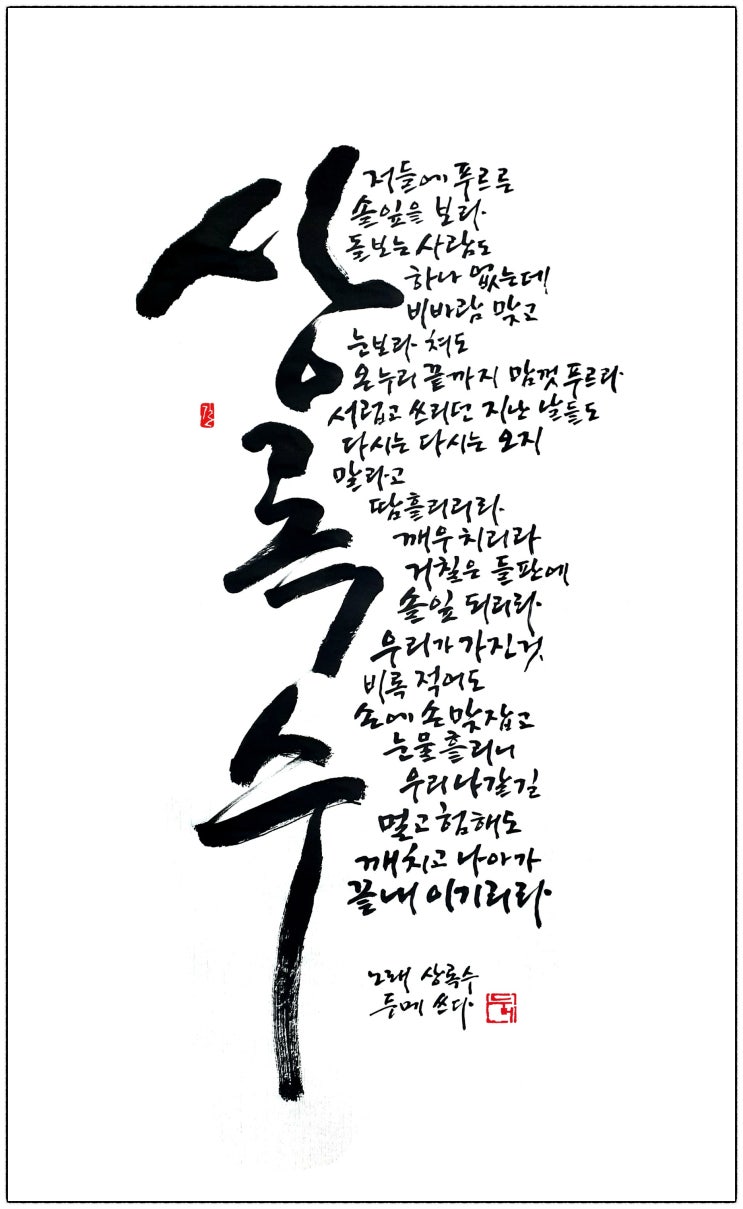 상록수
저들에 푸르른
솔잎을 보라
돌보는 사람도
하나 없는데
비바람 맞고
눈보라 쳐도
온누리 끝까지 맘껏 푸르라
서럽고 쓰리던 지난 날들도
다시는 다시는 오지
말라고
땀흘리리라
깨우치리라
거칠은 들판에
솔잎 되리라
우리가 가진것
비록 적어도
손에 손맞잡고
눈물흘리니
우리나갈길
멀고험해도
깨치고 나아가
끝내 이기리라
노래 상록수
두메 쓰다
두메